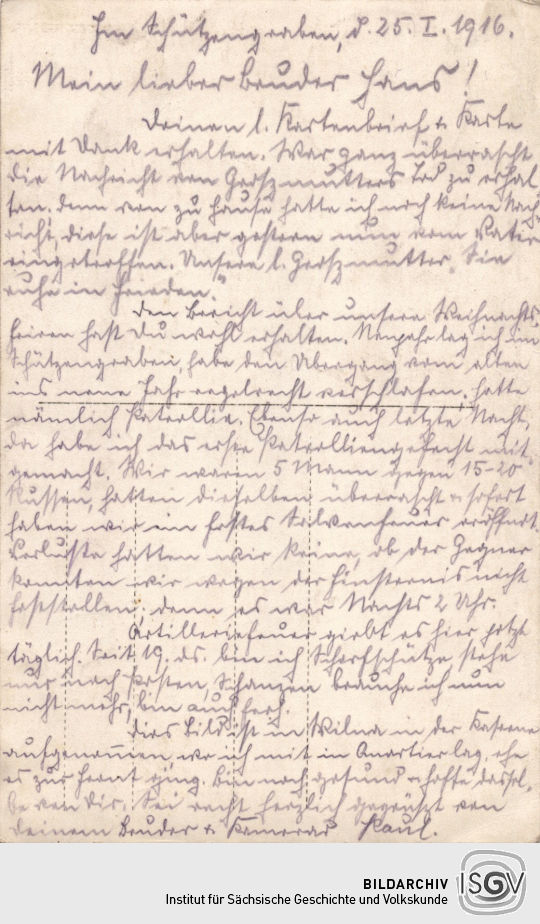 Im Schützengraben, d. 25. I. 1916.
Mein lieber Bruder Hans!
Deinen l. Kartenbrief & Karte
mit Dank erhalten. War ganz überrascht
die Nachricht von Groszmutters Tod zu erhal-
ten, denn von zu Hause hatte ich noch keine Nach-
richt, diese ist aber gestern nun vom Vater
eingetroffen. Unsere l. Groszmutter "Sie
ruhe in Frieden."
Den Bericht über unsere Weihnachts-
feiern hast Du wohl erhalten. Neujahr lag ich im
Schützengraben, habe den Übergang vom alten
ins neue Jahr regelrecht verschlafen, hatte
nämlich Patrollie. Ebenso auch letzte Nacht,
da habe ich das erste Patrolliengefecht mit
gemacht. Wir waren 5 Mann gegen 15-20
Russen, hatten dieselben überrascht & sofort
haben wir ein festes Salvenfeuer eröffnet.
Verluste hatten wir keine, ob der Gegner
konnten wir wegen der Finsternis nicht
feststellen, denn es war Nachts 2 Uhr.
Artilleriefeuer giebt es hier jetzt
täglich. Seit 19. ds. bin ich Scharfschütze, stehe
nur noch Posten, Schanzen brauche ich nun
nicht mehr, bin auch froh.
Dies Bild ist in Wilna in der Kaserne
aufgenommen, wo ich mit in Quartier lag, ehe
es zur Front ging. Bin noch gesund & hoffe dassel-
be von Dir. Sei recht herzlich gegrüszt von
Deinem Bruder & Kamerad Paul.
BILDARCHIV
ISGV
Institut für Sächsische Geschichte und Volkskunde